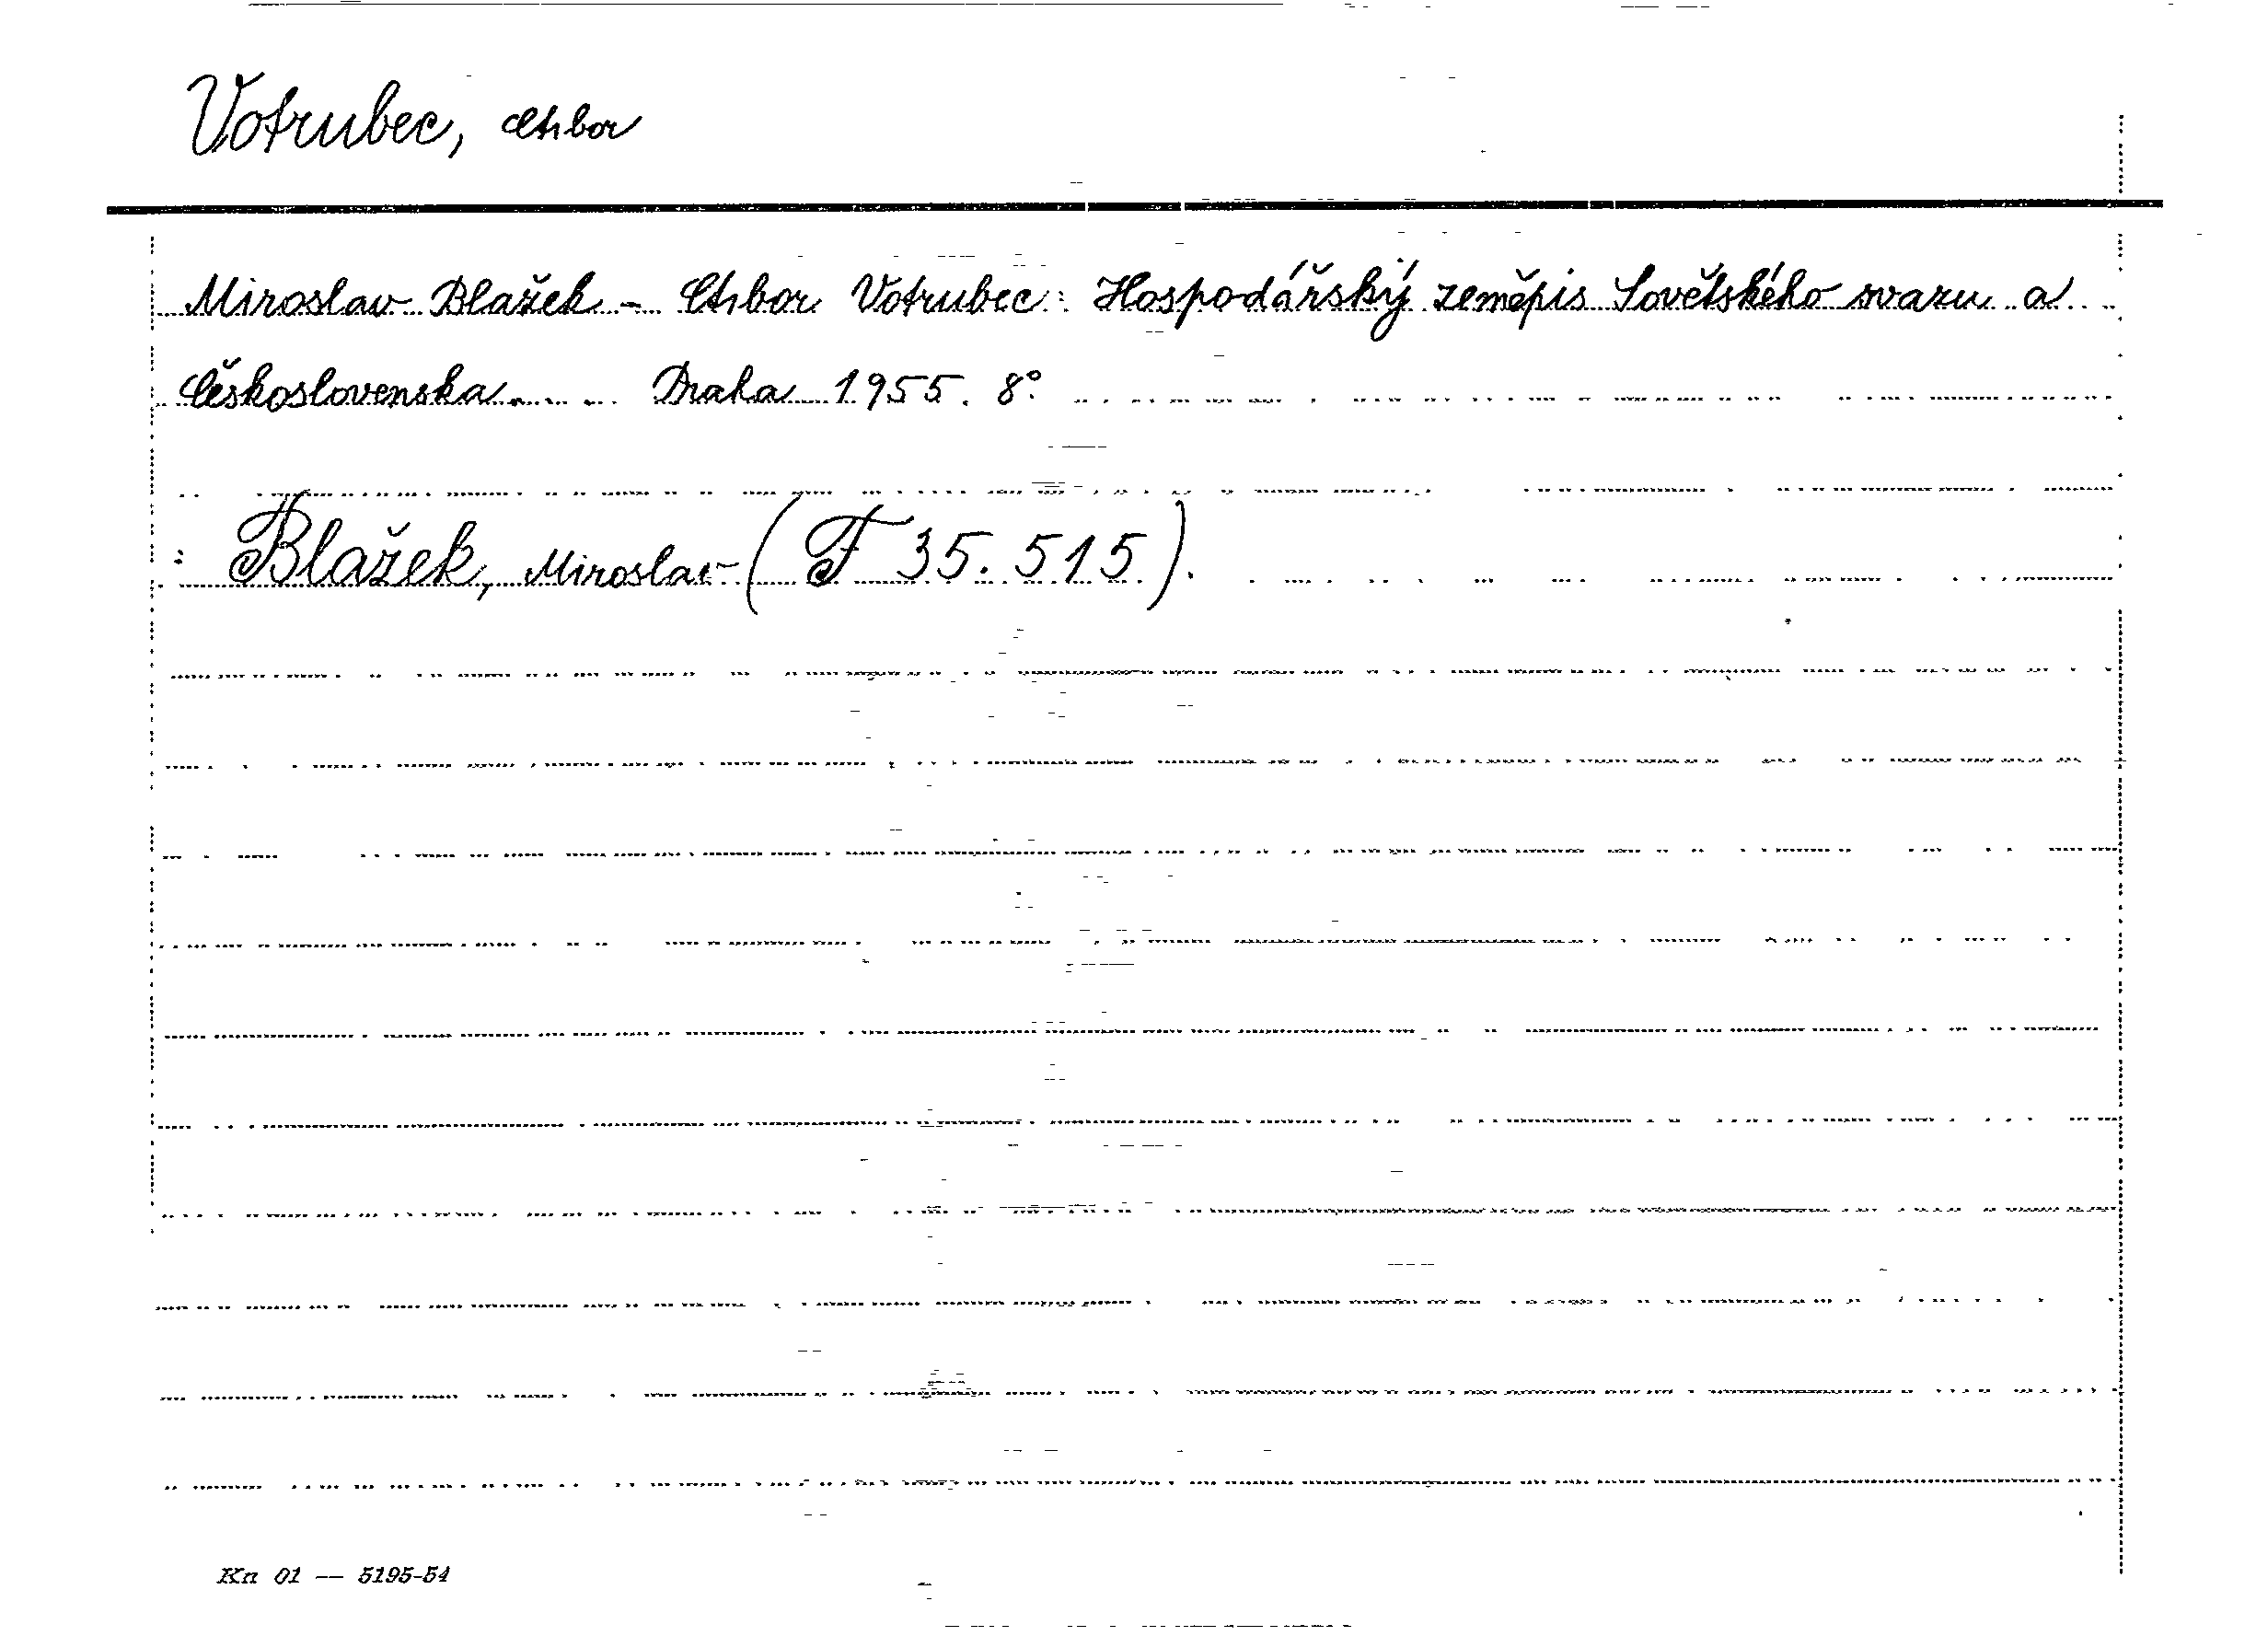 Votrubec, Ctibor
Miroslav Blažek - Ctibor Votrubec: Hospodářský zeměpis Sovětského svazu a
Československa.... Praha 1955. 8°.
: Blažek, Miroslav (F 35.515).
Kn 01 — 5195-54